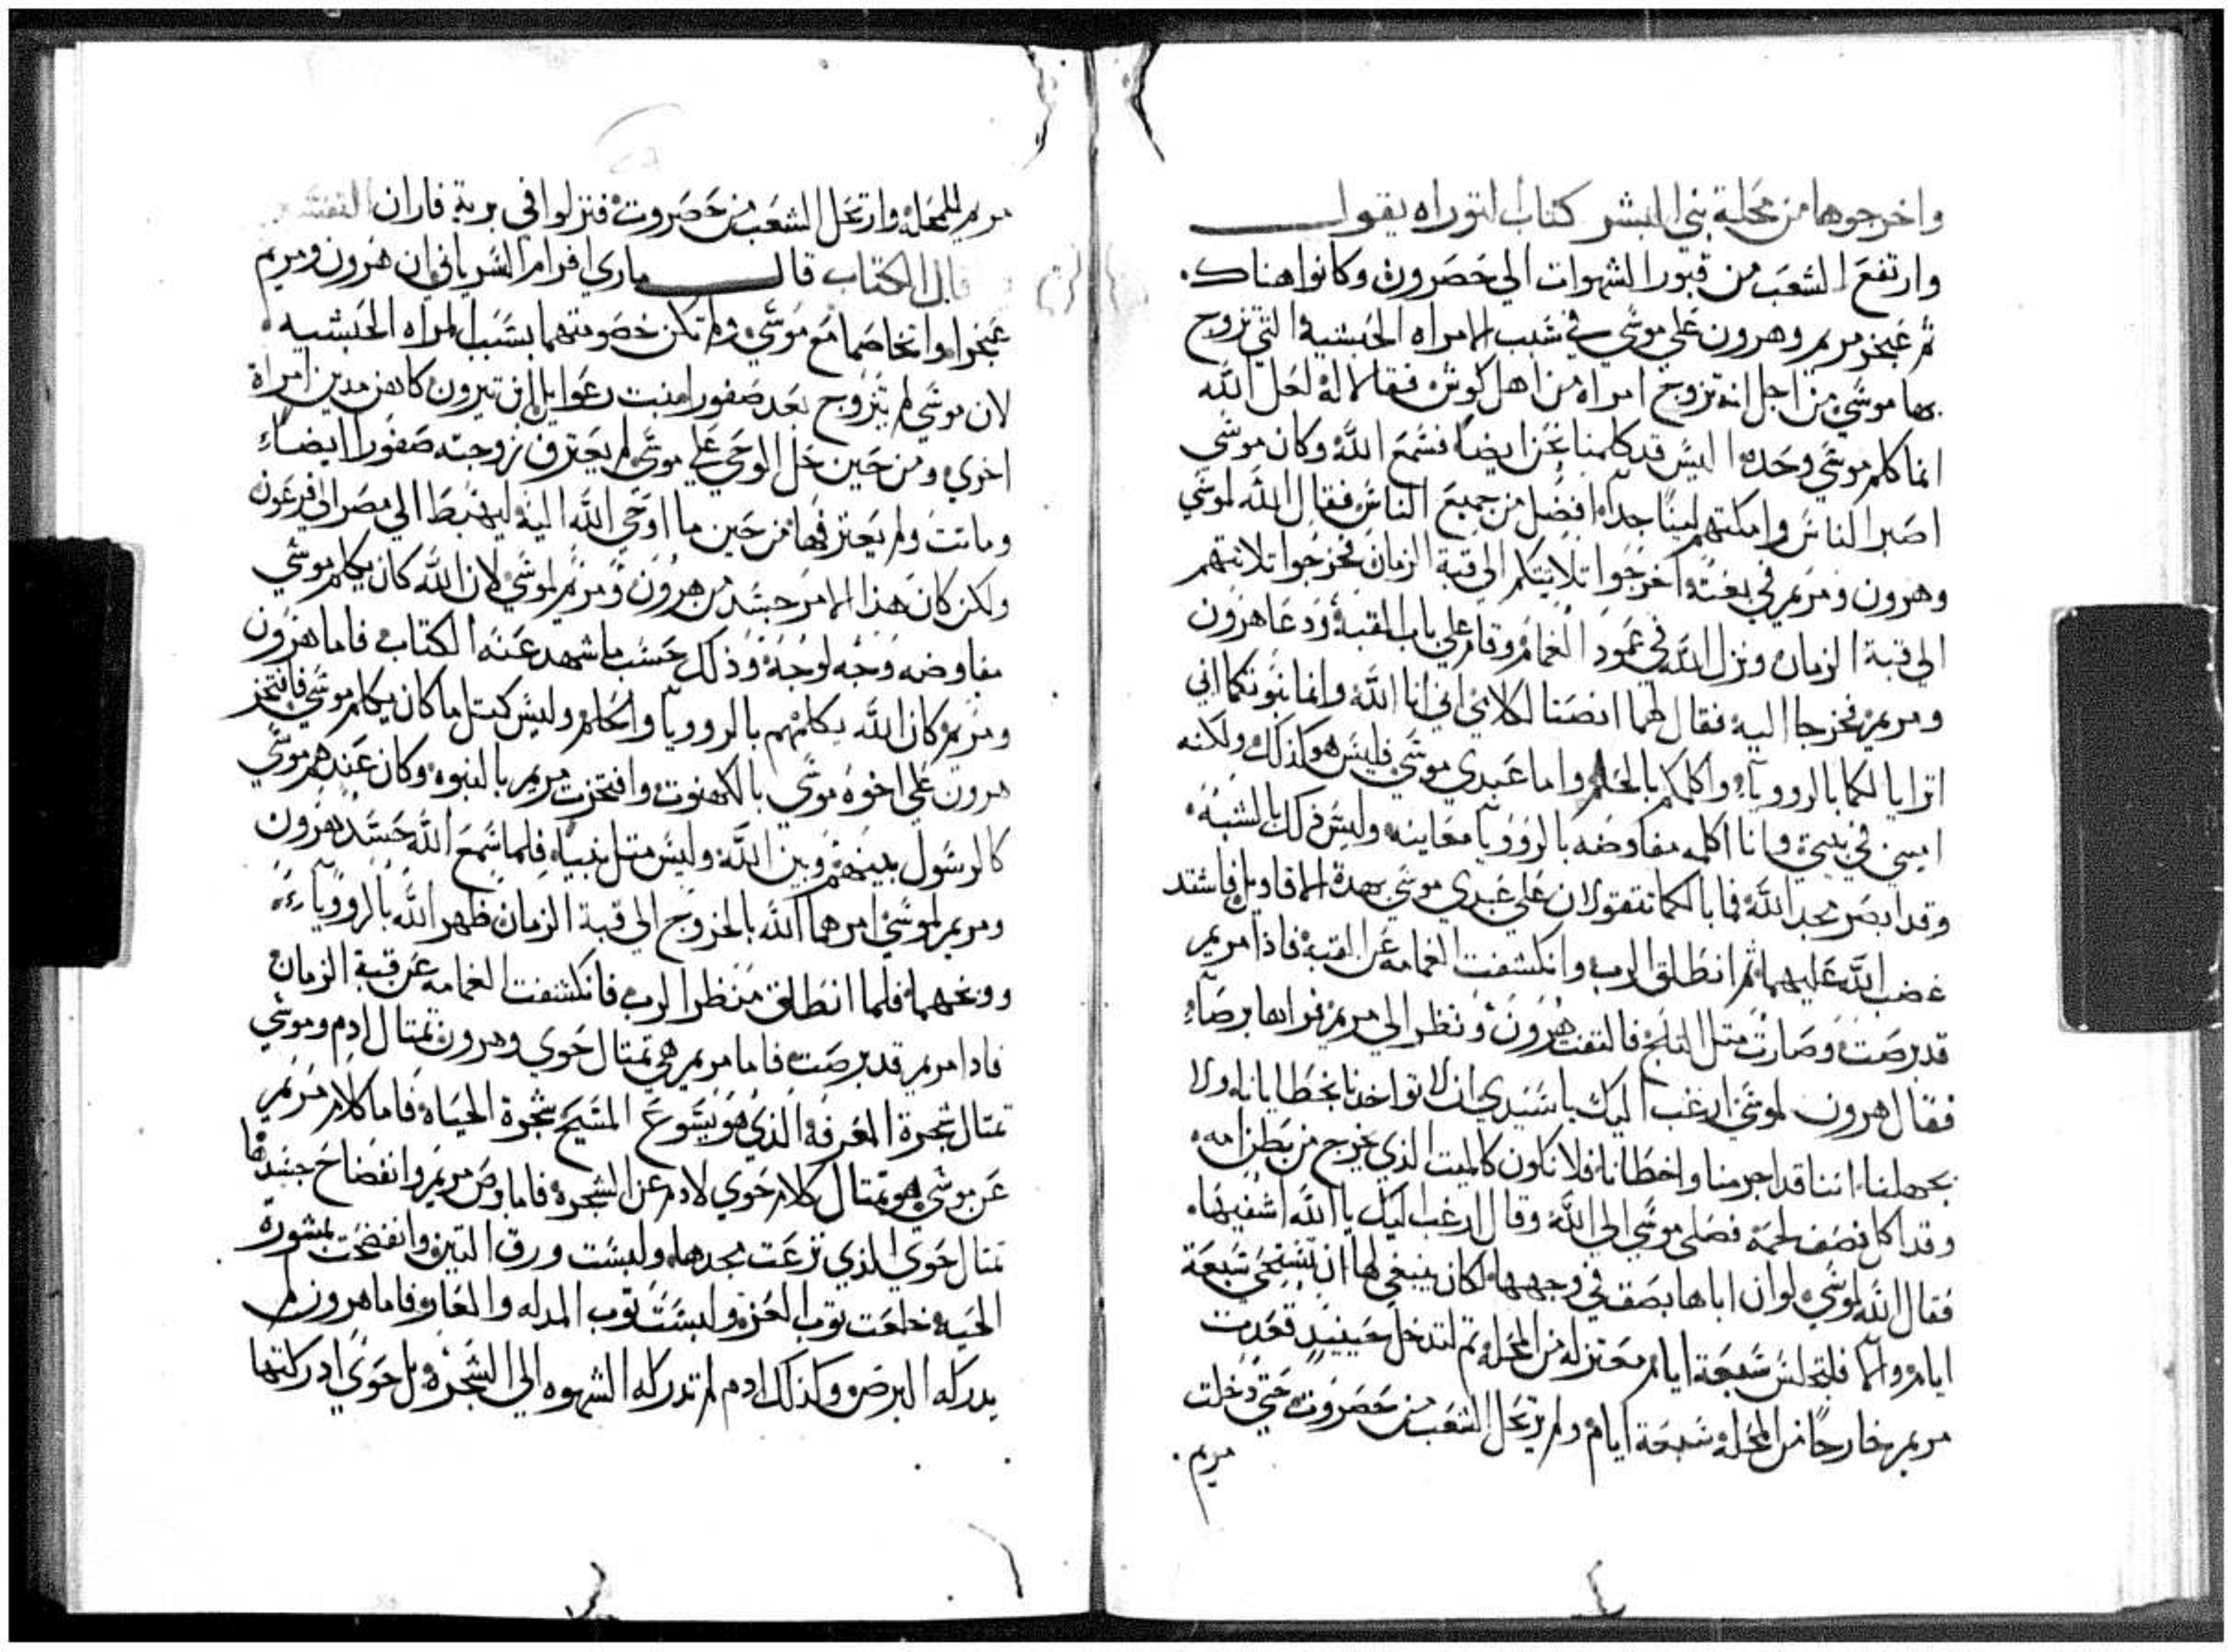 واخرجوها من محلة بني البشر كتاب التوراه يقول
وارتفع الشعب من قبور الشهوات الي حصروت وكانوا هناك.
ثم مريم وهرون علي موسي في سبب الامراه الحبشيه التي تزوج
بها موسي من اجل انه تزوج امراه من اهل كوش فقالا له لعل الله
انما كلم موسي وحده اليس قد كلمنا نحن ايضا فسمع الله وكان موسي
اصبر الناس وامكنهم لينا جدا افضل من جميع الناس فقال الله لموسي
وهرون ومريم في بغته اخرجوا تلاتتكم الي قبة الزمان فخرجوا تلاتتهم
الي قبة الزمان ونزل الله في عمود الغمام وقام علي باب القبه ودعا هرون
ومريم فخرجا اليه فقال لهما انصتا لكلامي اني انا الله وانما نبوتكما اني
اترايا لكما بالروويا واكلمكم بالحلم واما عبدي موسي فليس هو كذلك ولكنه
في بيتي وانا اكلمه مفاوضه بالروويا معاينه وليس ذلك بالشبه
وقد ابصر مجد الله فما بالكما تتقولان علي عبدي موسي بهدة الاقاويل فاشتد
غضب الله عليهما ثم انطلق الرب وانكشفت الغمامه عن القبه فاذا مريم
قد برصت وصارت متل التلج فالتفت هرون ونظر الي مريم فراها برصا
فقال هرون لموسي ارغب اليك يا سيدي ان لا تواخدنا بخطايانا ولا
بجهلنا اننا قد اجرمنا واخطانا فلا نكون كالميت الذي يخرج من بطن امه
وقد اكل نصف لحمه فصلي موسي الي الله وقال ارغب اليك يا الله اشفيها
فقال الله لموسي لو ان اباها بصق في وجهها لكان ينبغي لها ان تستحي سبعة
ايام والا فلتجلس سبعة ايام معتزله من المحله تم لتدخل حينيد فقعدت
مريم خارجا من المحله سبعة ايام ولم يرتحل الشعب من حصروت حتي دخلت
مريم
مريم للمحله وارتحل الشعب من حصروت فنزلوا في برية فاران التفسير
قال الكتاب قال ماري افرام السرياني ان هرون ومريم
واتخاصما مع موسي ولم تكن خصومتهما بسبب المراه الحبشيه
لان موسي لم يتزوج بعد صفورا بنت رعوايل كاهن مدين امراة
اخري ومن حين حل الوحي علي موسي لم يعترف زوجته صفورا ايضا
وماتت ولم يعترفها من حين ما اوحي الله اليه ليهبط الي مصر الي فرعون
ولكن كان هذا الامر حسد من هرون ومريم لموسي لان الله كان يكلم موسي
مفاوضه وجه لوجه وذلك حسب ما شهد عنه الكتاب فاما هرون
ومريم كان الله يكلمهم بالروويا والحلم وليس كمتل ما كان يكلم موسي فافتخر
هرون علي اخوه موسي بالكهنوت وافتخرت مريم بالنبوه وكان عندهم موسي
كالرسول بينهم وبين الله وليس متل نبيا فلما سمع الله حسد هرون
ومريم لموسي امرهما الله بالخروج الي قبة الزمان ظهر الله بالروويا
ووبخهما فلما انطلق منظر الرب فانكشفت الغمامه عن قبة الزمان
فادا مريم قد برصت فاما مريم هي تمتال حوي وهرون تمتال ادم وموسي
تمتال شجرة المعرفه الذي هو يسوع المسيح شجرة الحياه فاما كلام مريم
عن موسي هو تمتال كلام حوي لادم عن الشجره فاما برص مريم وانفضاح جسدها
تمتال حوي الذي نزعت مجدها ولبست ورق التين وانفضحت بمشورة
الحيه خلعت توب العز ولبست توب المدله والعار فاما هرون لم
يدركه البرص وكذلك ادم لم تدركه الشهوه الي الشجره بل حوي ادركتها